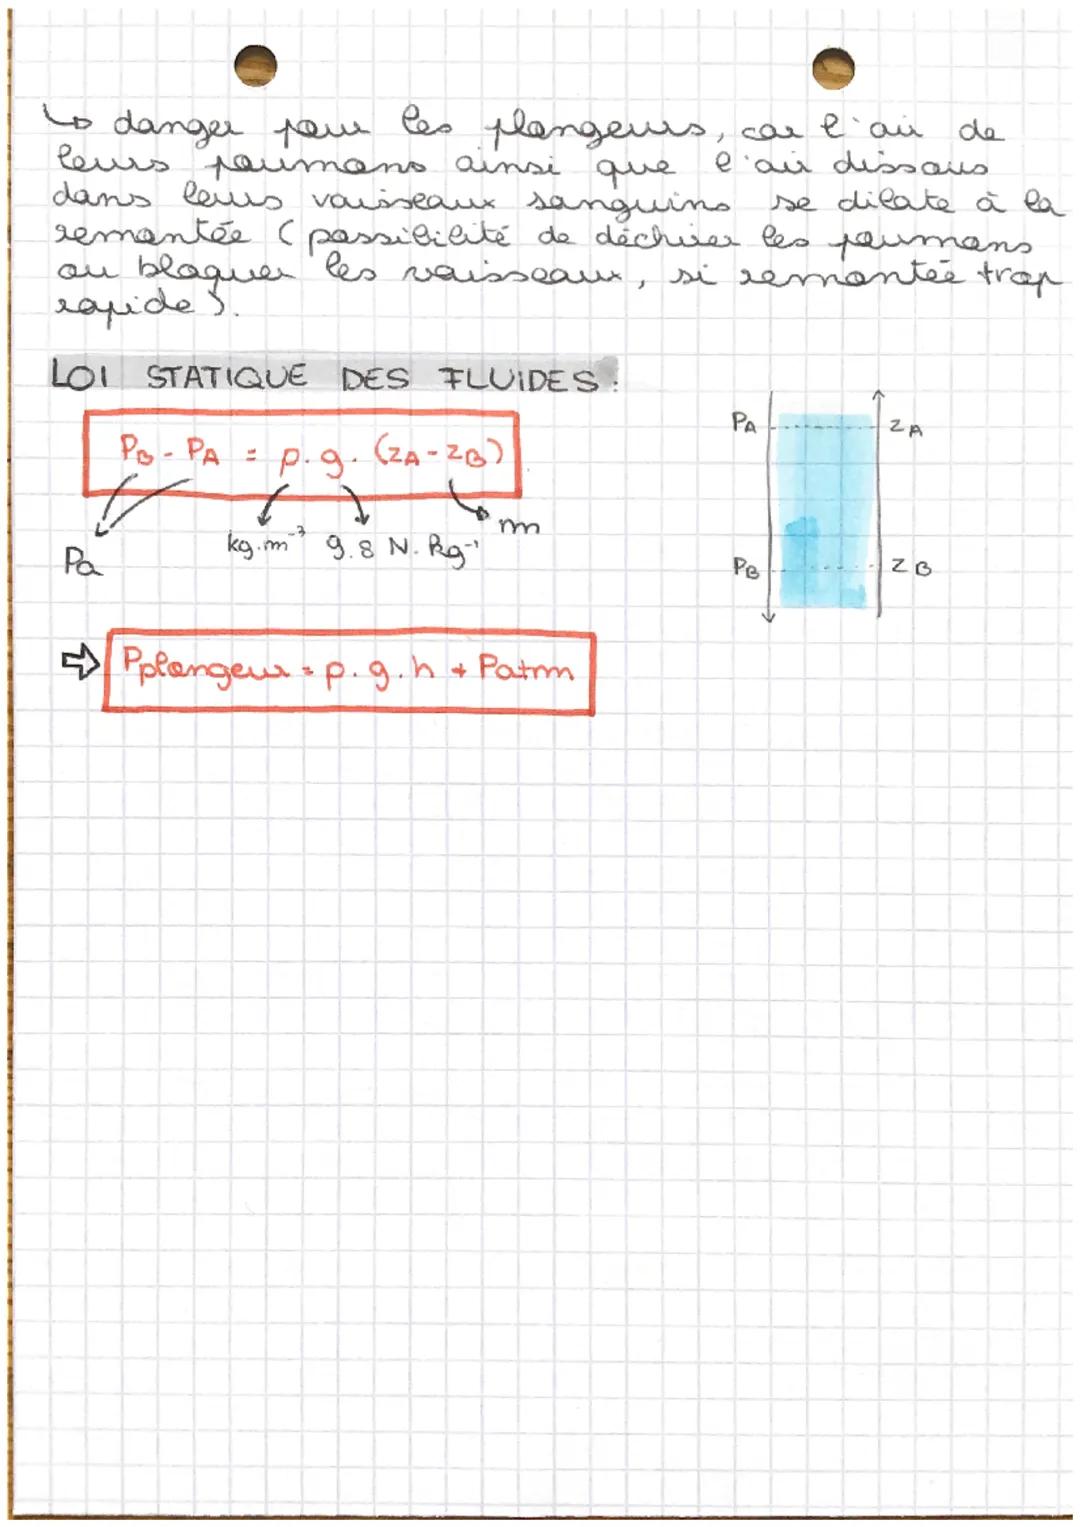 ↳ danger pour les plongeurs, car l'air de
leurs poumons ainsi que l'air dissous
dans leurs vaisseaux sanguins se dilate à la
remontée (possibilité de déchirer les poumons
ou bloquer les vaisseaux, si remontée trop
rapide).
LOI STATIQUE DES FLUIDES :
PB - PA = ρ. g. (zA - zB)
Pa
kg.m⁻³ 9.8 N. kg⁻¹
m
PA zA
PB zB
⇨ Pplongeur = ρ. g. h + Patm